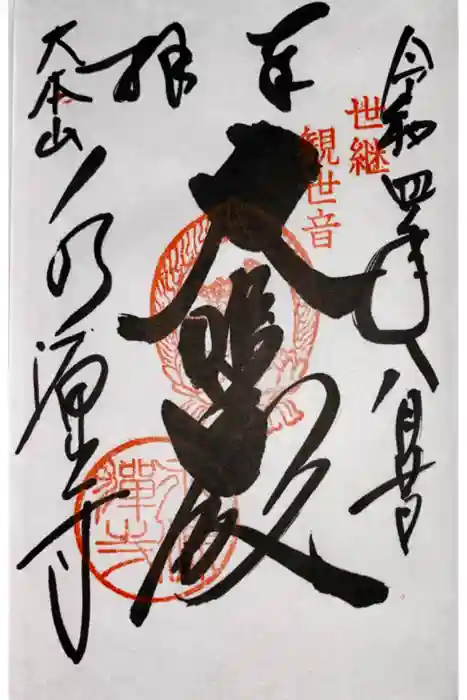 令和四年八月廿日
奉拝
世継
観世音
大悲殿
大本山
永源寺